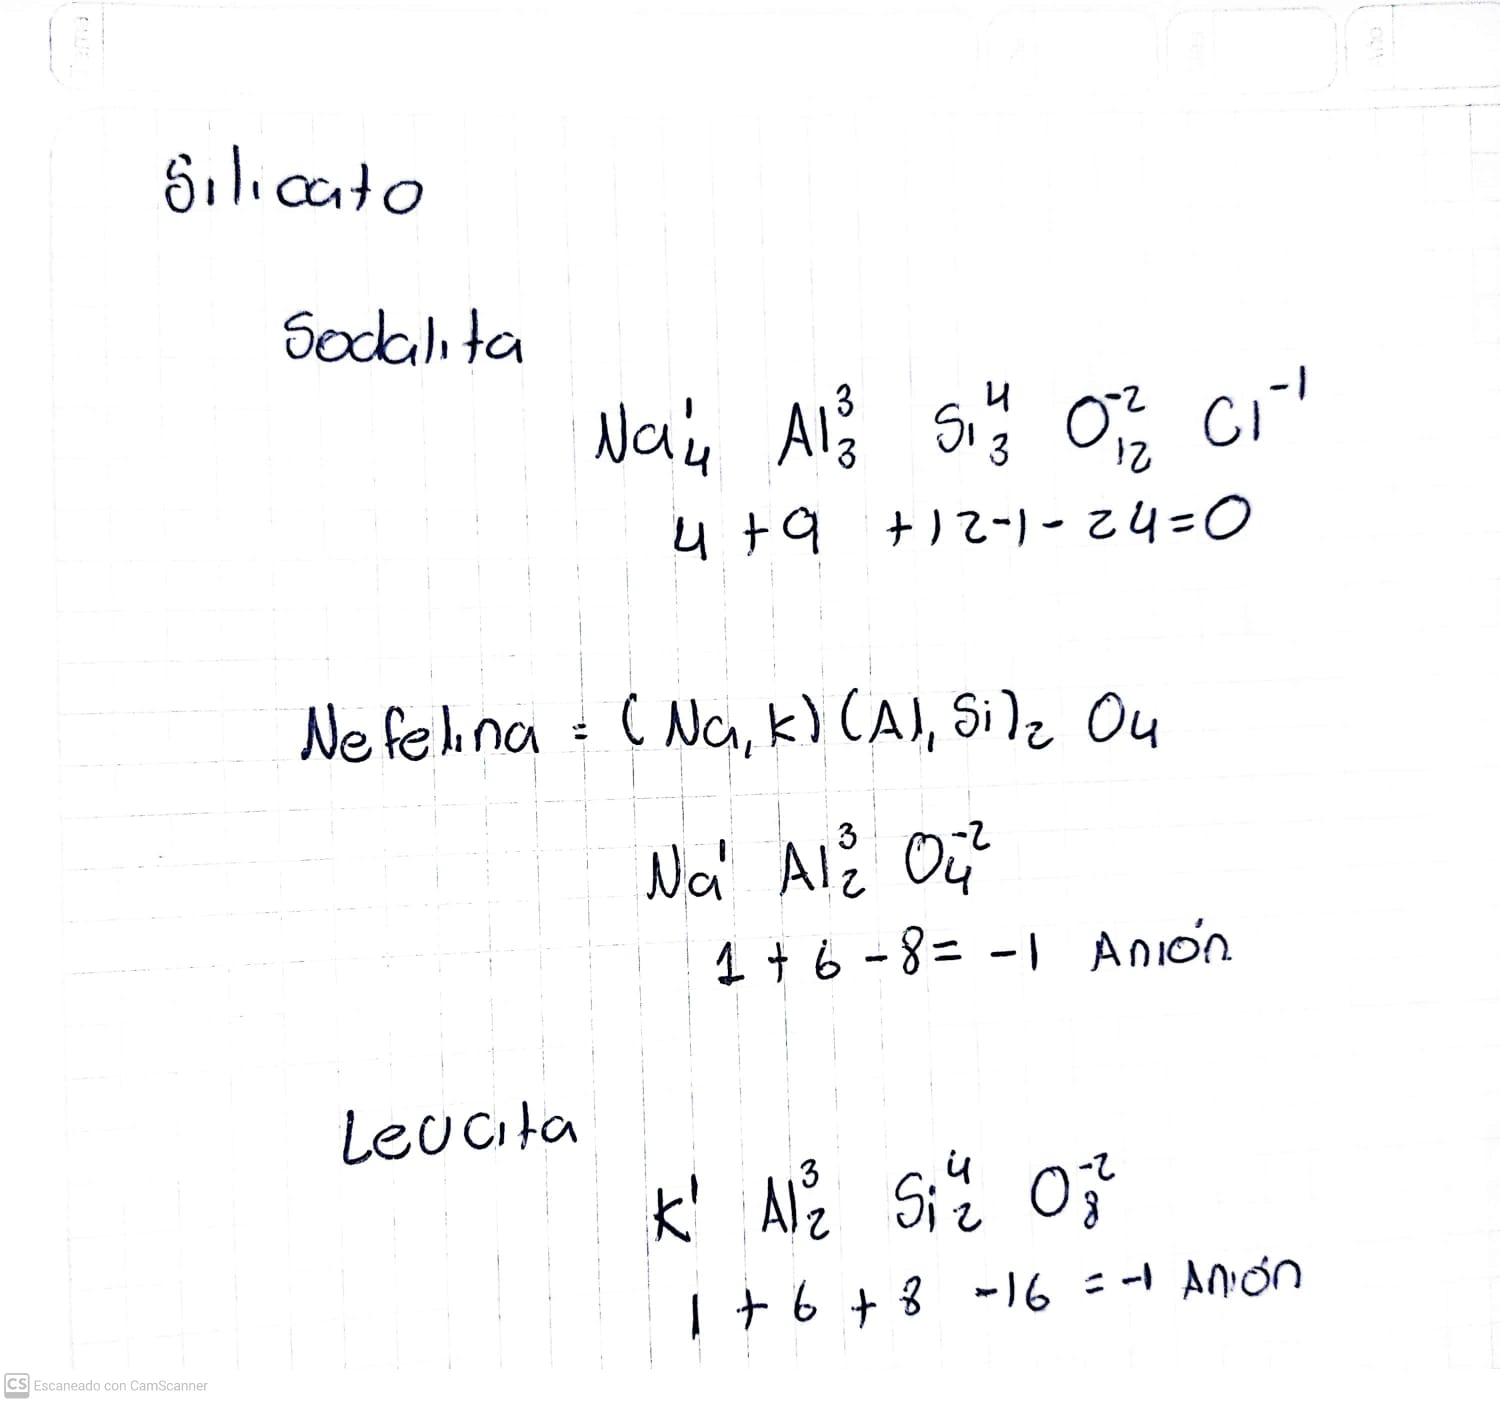 Silicato
Sodalita
Na¹₄ Al³₃ Si⁴₃ O⁻²₁₂ Cl⁻¹
4 + 9 + 12 - 1 - 24 = 0
Nefelina = (Na, K) (Al, Si)₂ O₄
Na¹ Al³₂ O₄⁻²
1 + 6 - 8 = -1 Anión
Leucita
K¹ Al³₂ Si⁴₂ O₈⁻²
1 + 6 + 8 - 16 = -1 Anión
CS Escaneado con CamScanner